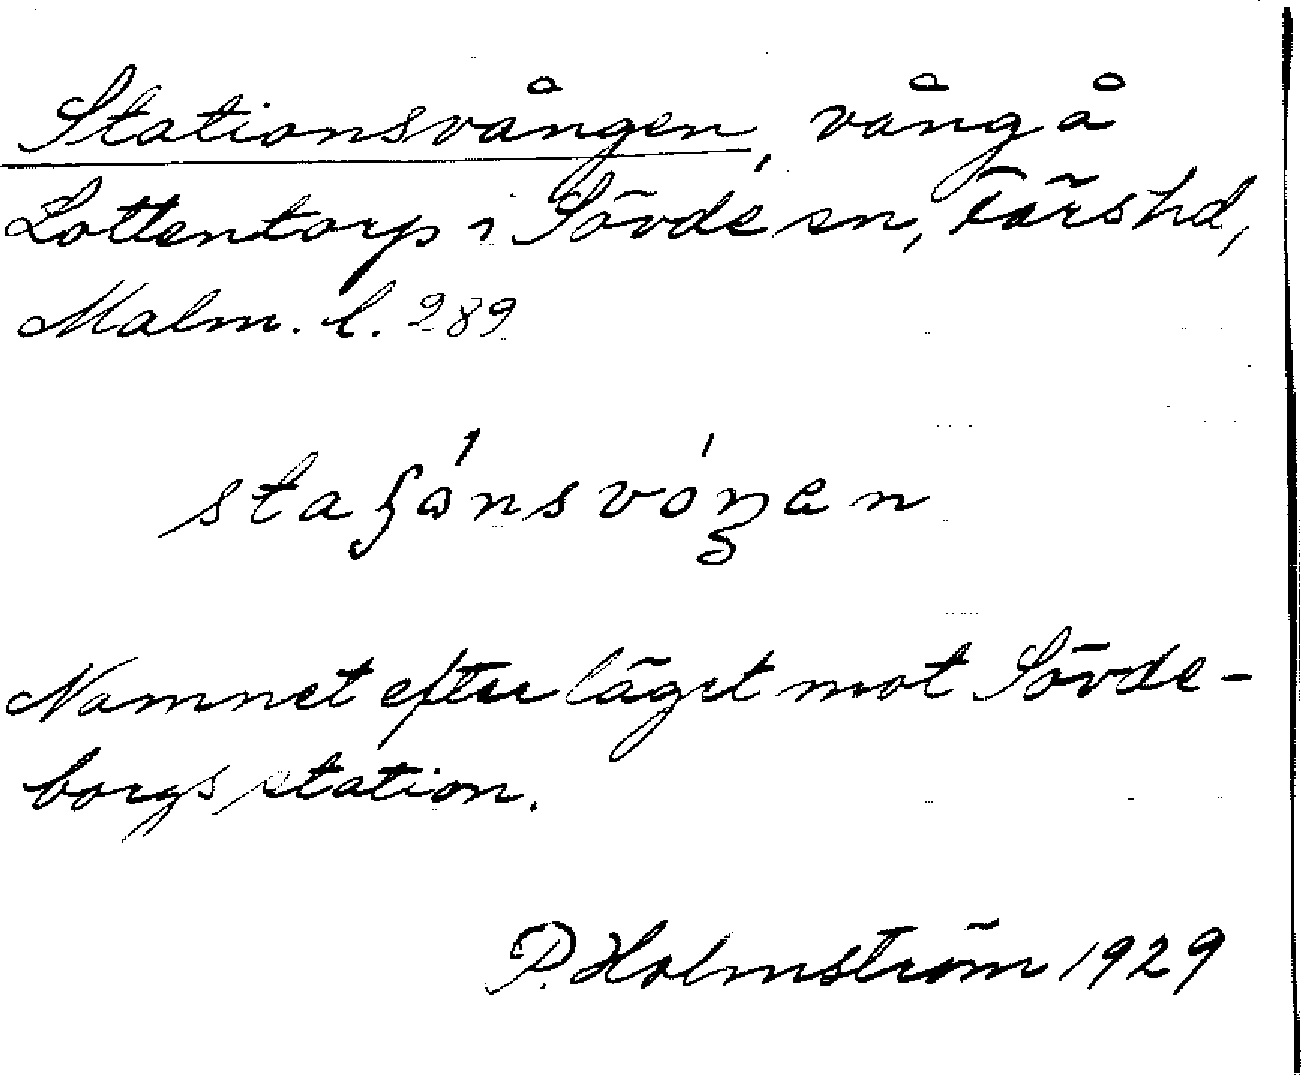 Stationsvången, vång å
Lottentorp i Sövde sn, Färs hd,
Malm. l. 289
staʃánsvóŋen
Namnet efter läget mot Sövde-
borgs station.
P. Holmström 1929